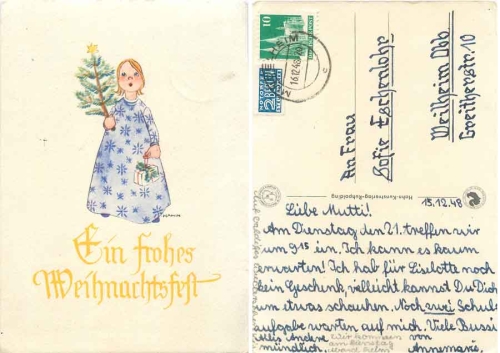 Ein frohes
Weihnachtsfest
10
16.12.48
NOTOPFER
2 BERLIN
STEUERMARKE
An Frau
Sofie Eschenlohr
Weilheim Obb.
Greitherstr. 10
Hohn-Kunstverlag-Ruhpolding
15.12.48
Liebe Mutti!
Am Dienstag den 21. treffen wir
um 9 15 in. Ich kann es kaum
erwarten! Ich hab für Liselotte noch
kein Geschenk, vielleicht kannst Du Dich
um etwas schauen. Noch zwei Schul-
aufgabe warten auf mich. Viele Bussi
Alles Andere
mündlich
von
Annemarie.
Wir kommen
am Dienstag